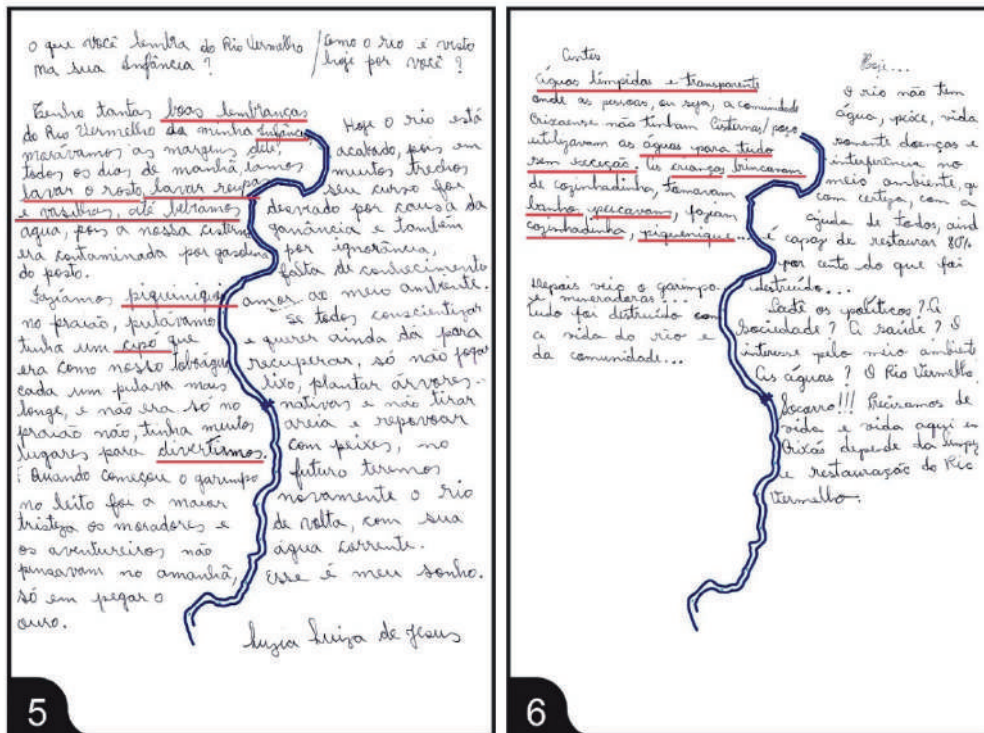 O que você lembra do Rio Vermelho
na sua Infância ?
Tenho tantas boas lembranças
do Rio Vermelho da minha Infância
morávamos as margens dele,
todos os dias de manhã, íamos
lavar o rosto, lavar roupa
e vasilhas, até bebíamos
água, pois a nossa cisterna
era contaminada por gasolina
do posto.
Fazíamos piquinique
no praião, pulávamos
tinha um cipó que
era como nosso tobóágua
cada um pulava mais
longe, e não era só no
praião não, tinha muitos
lugares para divertirmos.
Quando começou o garimpo
no leito foi a maior
tristeza os moradores e
os aventureiros não
pensavam no amanhã,
só em pegar o
ouro.
/ Como o rio é visto
hoje por você ?
Hoje o rio está
acabado, pois em
muitos trechos
seu curso foi
desviado por causa da
ganância e também
por ignorância,
falta de conhecimento
amor ao meio ambiente.
Se todos conscientizar
e querer ainda dá para
recuperar, só não jogar
lixo, plantar árvores
nativas e não tirar
areia e repovoar
com peixes, no
futuro teremos
novamente o rio
de volta, com sua
água corrente.
Esse é meu sonho.
Luzia Luiza de Jesus
5
Antes
Águas límpidas e transparente
onde as pessoas, ou seja, a comunidade
Crixaense não tinham Cisternas/poço
utilizavam as águas para tudo
sem exceção. As crianças brincavam
de cozinhadinho, tomavam
banho pescavam, faziam
cozinhadinha, piquenique...
Depois veio o garimpo
e mineradoras...
Tudo foi destruído com
a vida do rio e
da comunidade...
Hoje...
O rio não tem
água, peixe, vida
somente doenças e
interferência no
meio ambiente, qu
com certeza, com a
ajuda de todos, aind
é capaz de restaurar 80%
por cento do que foi
destruído...
Cadê os políticos ? A
Sociedade ? A saúde ? O
interesse pelo meio ambient
As águas ? O Rio Vermelho
Socorro!!! Precisamos de
vida e vida aqui em
Crixás depende da limpez
e restauração do Rio
Vermelho.
6